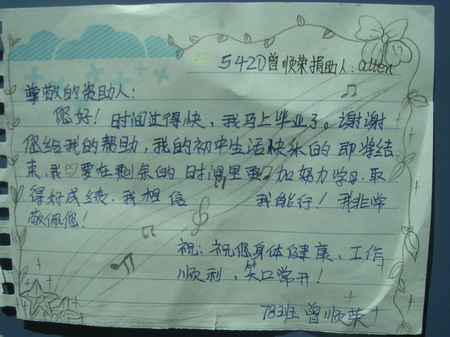 542D曾顺荣 捐助人：allen
尊敬的资助人：
您好！时间过得快，我马上毕业了。谢谢
您给我的帮助，我的初中生活快乐的即将结
束，我♡要在剩余的时间里更加努力学习.取
得好成绩.我相信 我能行！我非常
敬佩您！
祝：祝您身体健康、工作
顺利、笑口常开！
78班 曾顺荣